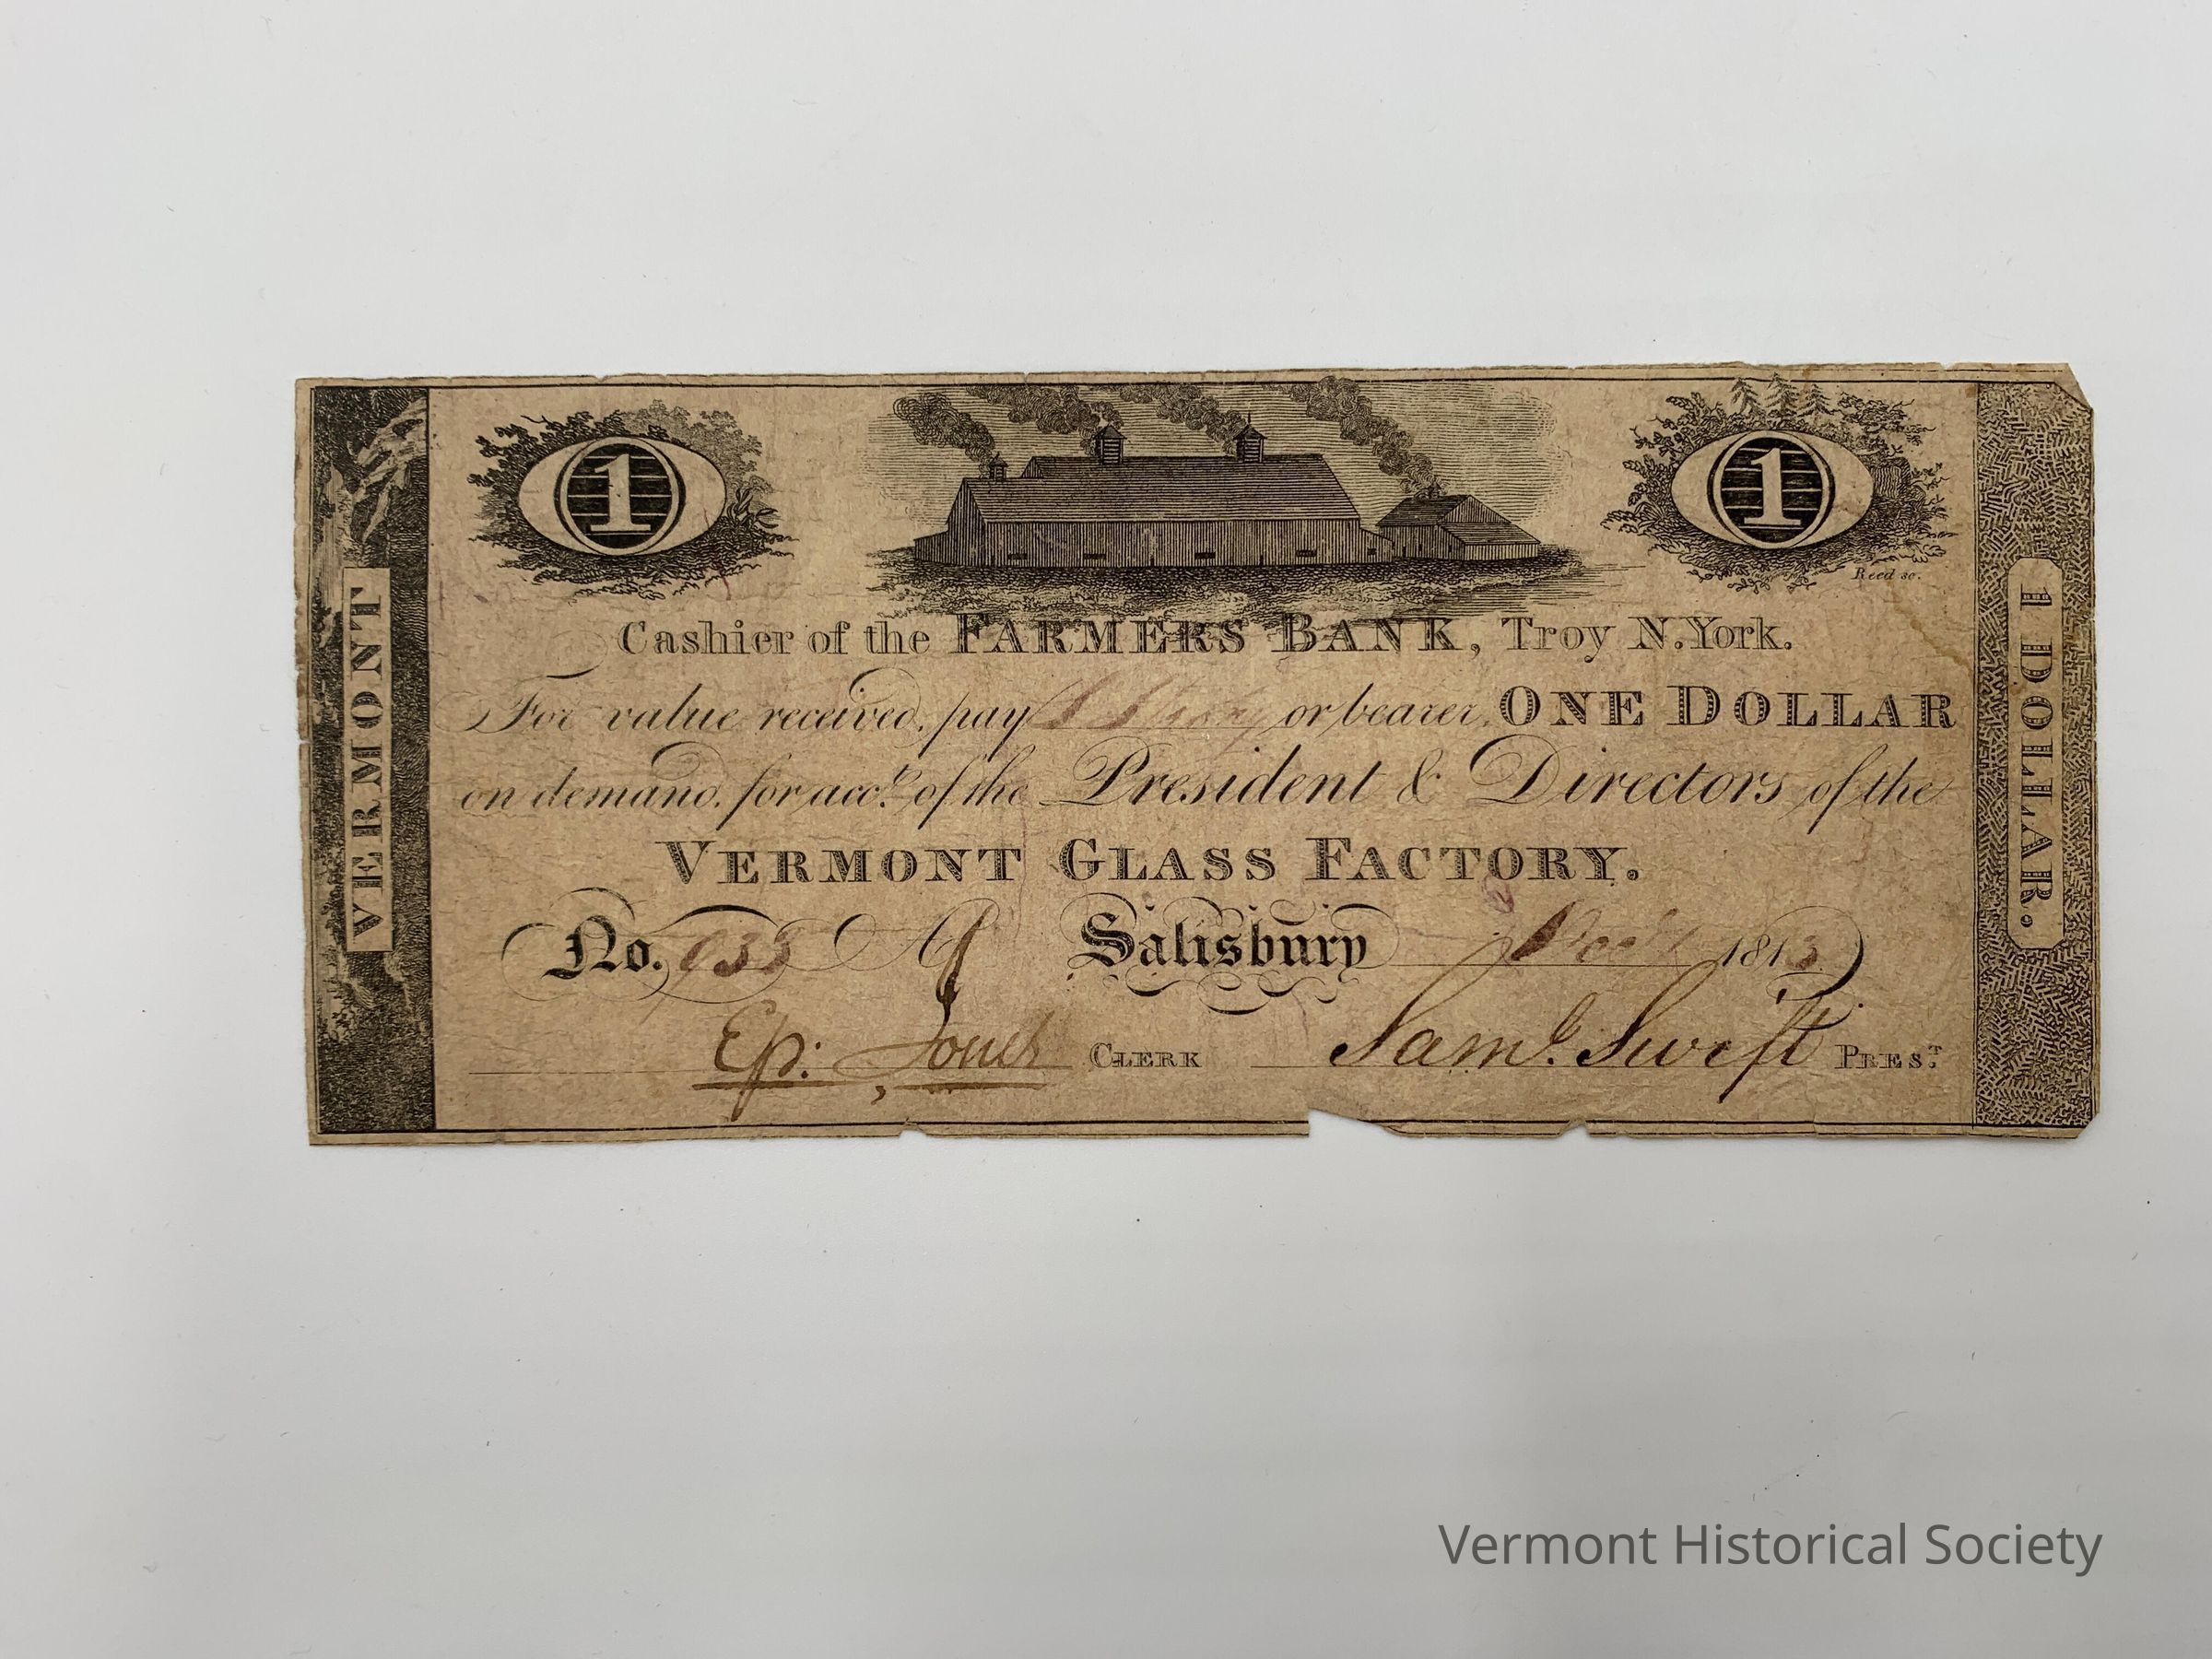 1
1
Reed sc.
VERMONT
Cashier of the FARMERS BANK, Troy N.York.
For value received, pay or bearer, ONE DOLLAR
on demand, for acct. of the President & Directors of the
VERMONT GLASS FACTORY.
No. 935 Salisbury 1813
Ep: Jones CLERK Saml. Swift PREST.
1 DOLLAR.
Vermont Historical Society